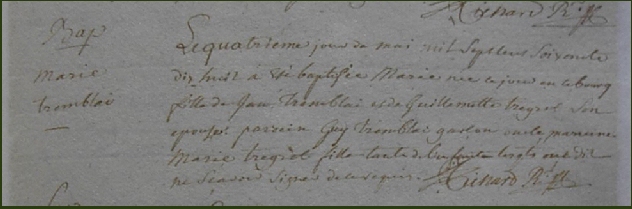 Menard R.
Bap
Marie
tremblai
Le quatrieme jour de mai mil sept cent soixante
dix huit à été baptisée Marie née ce jour en ce bourg
fille de Jan tremblai et de Guillemette tregret son
epouse parrein Guy tremblai oncle maraine
Marie tregret fille tante de l'enfant lesquels ont dit
ne scavoir signer de ce requis. Menard R.